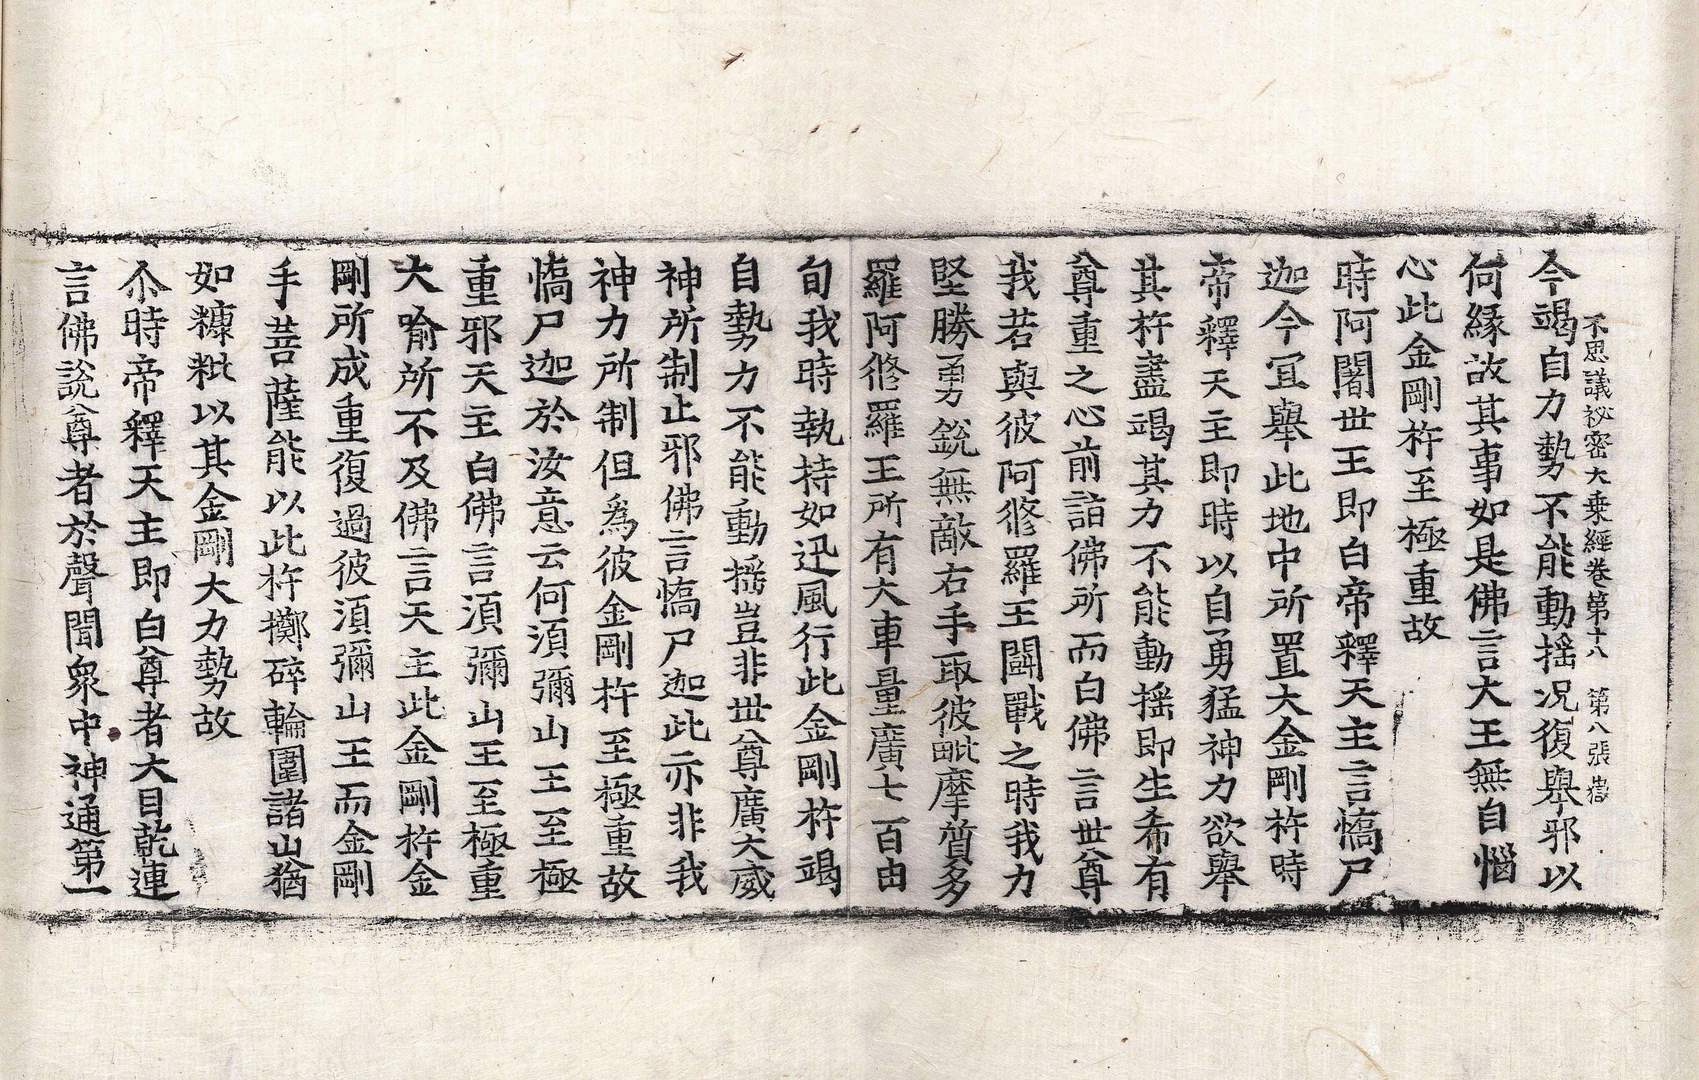 不思議祕密大乘經卷第十八　第八張　嶽
今竭自力勢不能動搖況復舉邪以
何緣故其事如是佛言大王無自惱
心此金剛杵至極重故
時阿闍世王即白帝釋天主言憍尸
迦今宜舉此地中所置大金剛杵時
帝釋天主即時以自勇猛神力欲舉
其杵盡竭其力不能動搖即生希有
尊重之心前詣佛所而白佛言世尊
我若與彼阿修羅王鬪戰之時我力
堅勝勇銳無敵右手取彼毗摩質多
羅阿修羅王所有大車量廣七百由
旬我時執持如迅風行此金剛杵竭
自勢力不能動搖豈非世尊廣大威
神所制止邪佛言憍尸迦此亦非我
神力所制但爲彼金剛杵至極重故
憍尸迦於汝意云何須彌山王至極
重邪天主白佛言須彌山王至極重
大喻所不及佛言天主此金剛杵金
剛所成重復過彼須彌山王而金剛
手菩薩能以此杵擲碎輪圍諸山猶
如糠粃以其金剛大力勢故
尒時帝釋天主即白尊者大目乾連
言佛說尊者於聲聞衆中神通第一